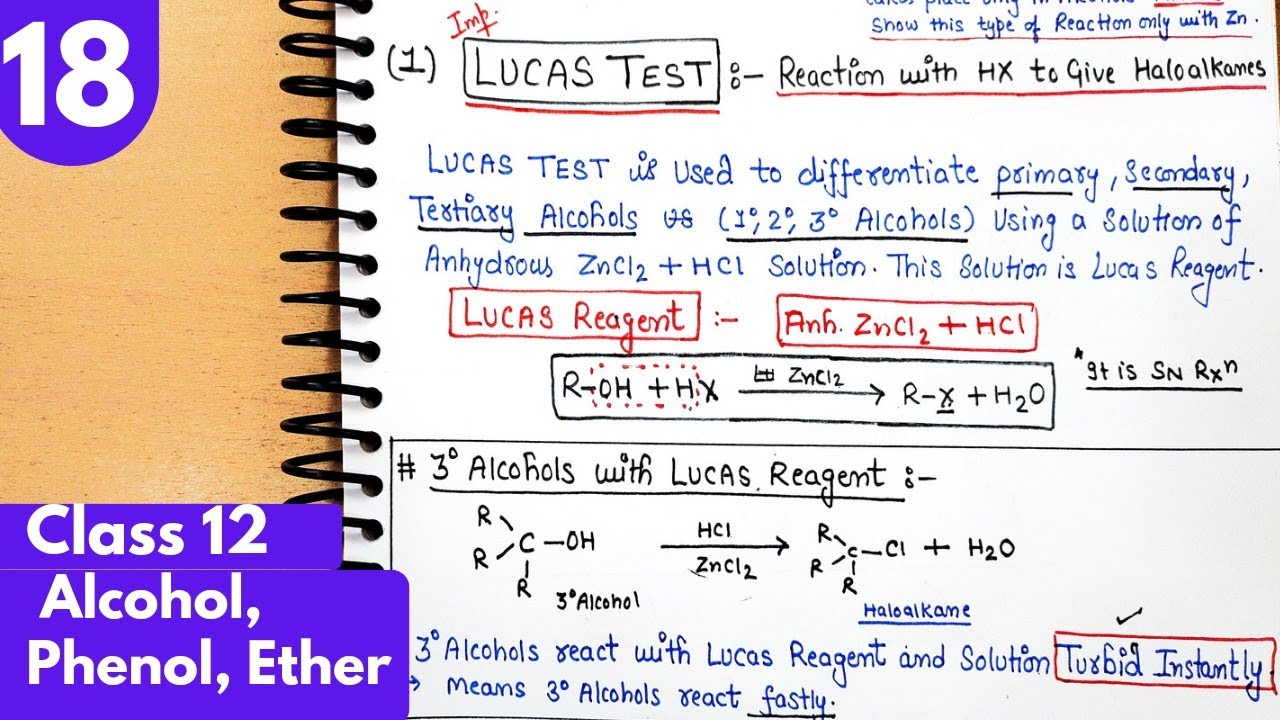 18
Imp.
Show this type of Reaction only with Zn.
(1) LUCAS TEST :- Reaction with HX to Give Haloalkanes
LUCAS TEST is used to differentiate primary, Secondary,
Tertiary Alcohols (1°, 2°, 3° Alcohols) Using a Solution of
Anhydrous ZnCl2 + HCl Solution. This Solution is Lucas Reagent.
LUCAS Reagent :- Anh. ZnCl2 + HCl
R-OH + HX ZnCl2 → R-X + H2O
*It is SN Rxn
# 3° Alcohols with LUCAS Reagent :-
R
R C-OH HCl R
R C-Cl + H2O
ZnCl2
R R
3° Alcohol
Haloalkane
3° Alcohols react with Lucas Reagent and Solution Turbid Instantly.
→ means 3° Alcohols react fastly.
Class 12
Alcohol,
Phenol, Ether